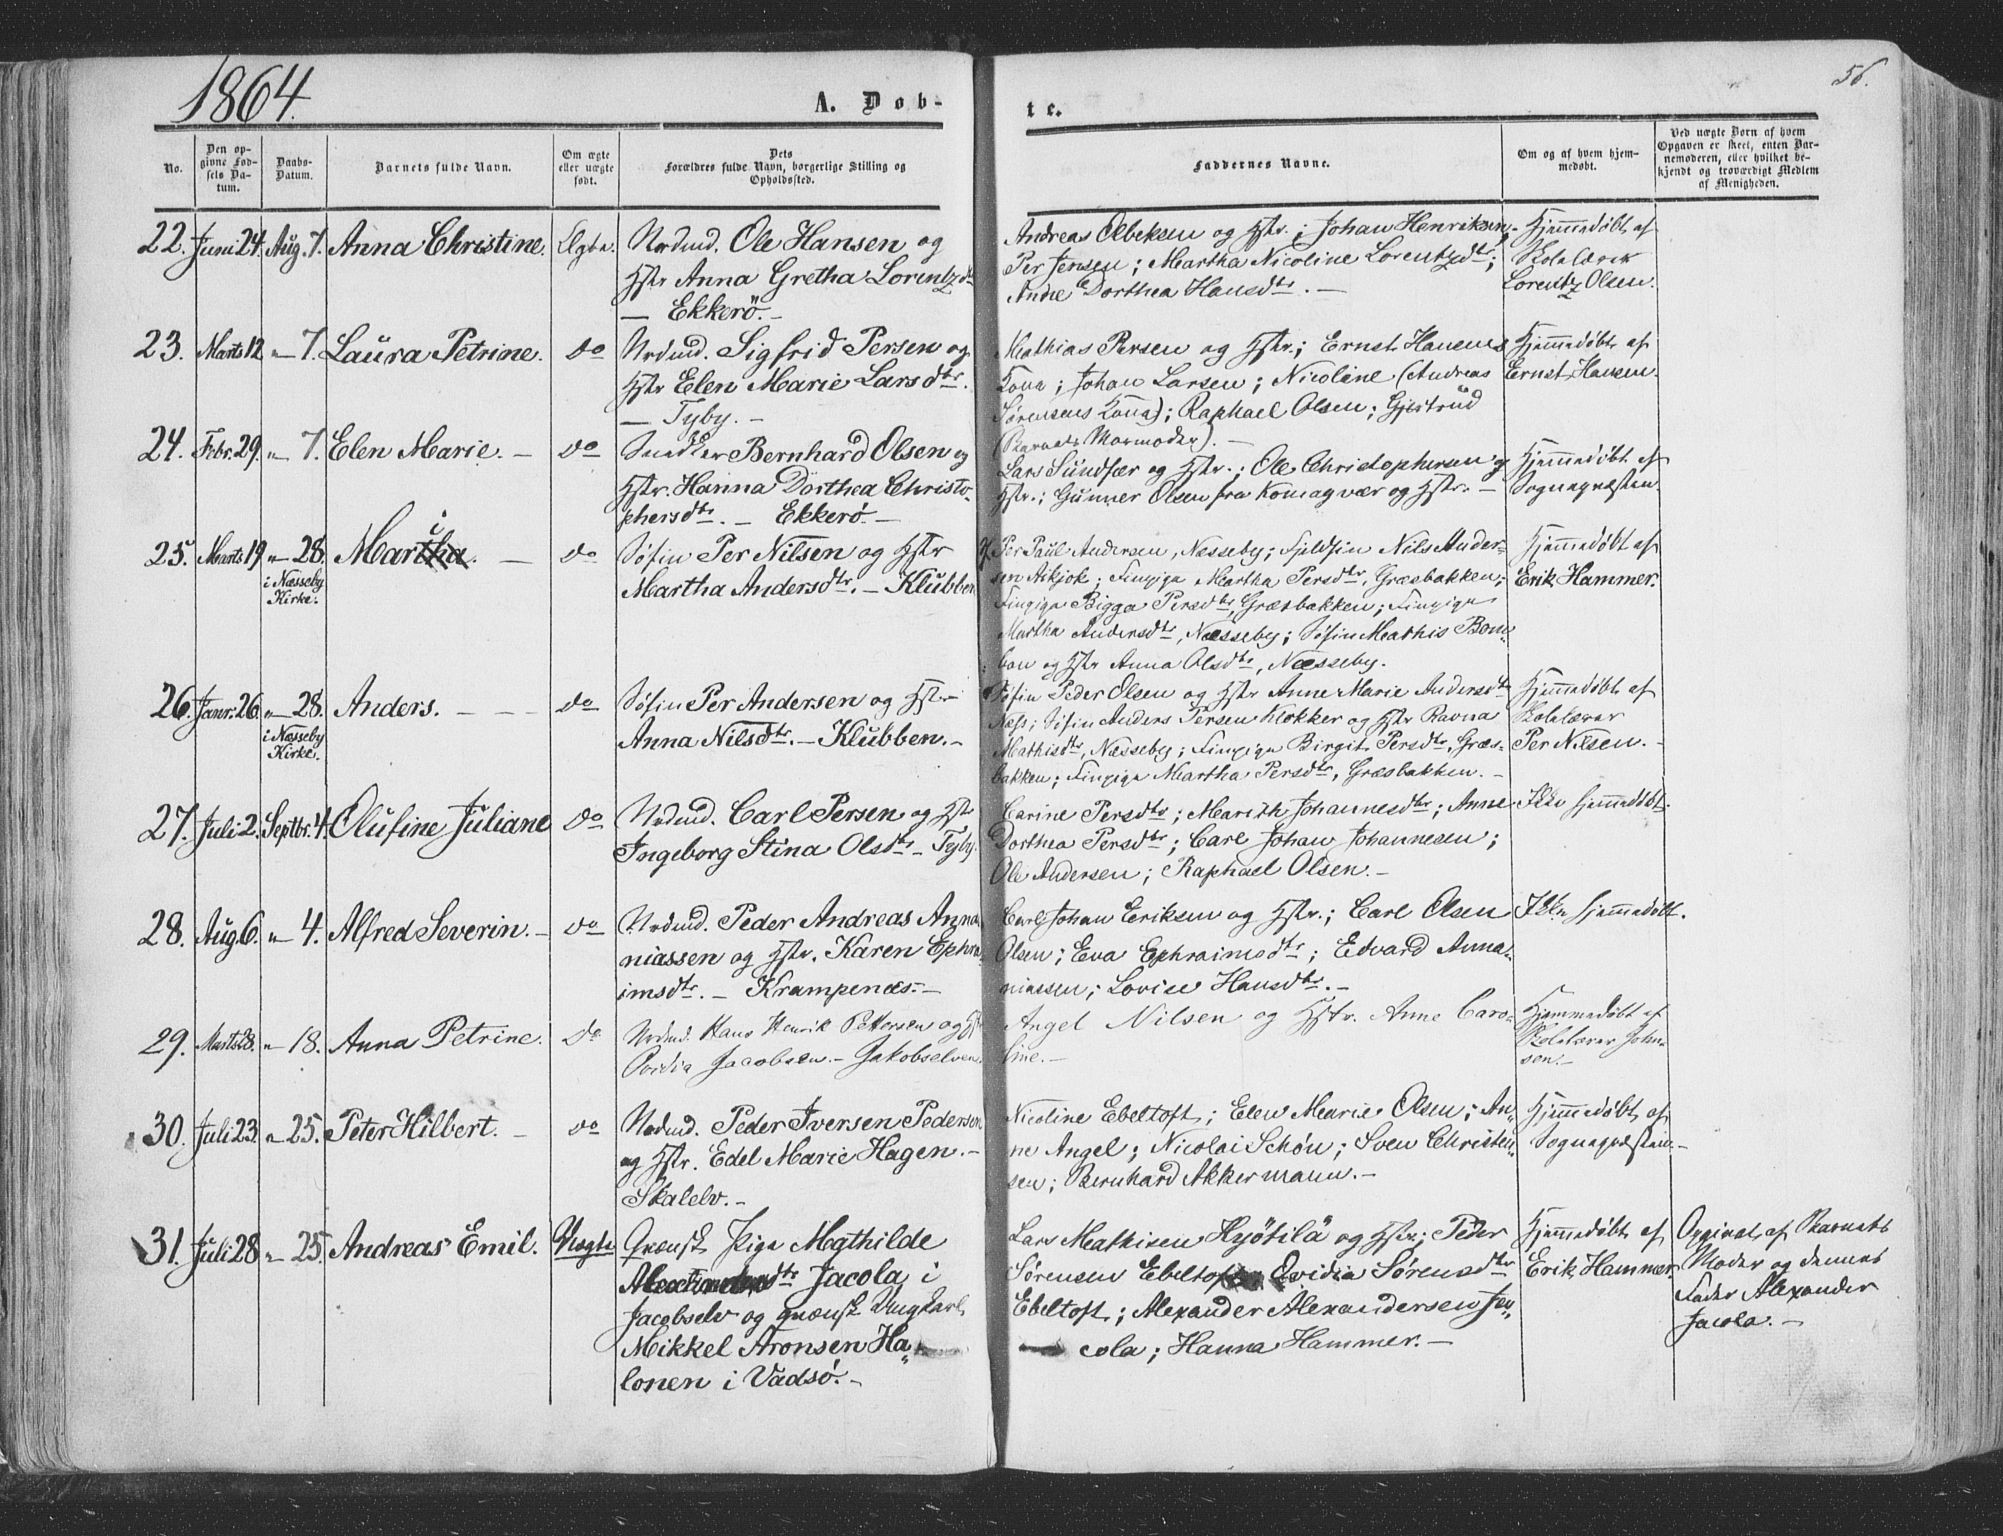 1864.
A. Døb-
te.
56.
No.
Den op-
givne Fød-
sels Da-
tum.
Daabs-
Datum.
Barnets fulde Navn.
Om ægte
eller uægte
født.
Dets
Forældres fulde Navn, borgerlige Stilling og
Opholdssted.
Faddernes Navne.
Om og af hvem hjem-
medøbt.
Ved uægte Børn af hvem
Opgaven er skeet, enten Bar-
nemoderen, eller hvilket be-
kjendt og troværdigt Medlem
af Menigheden.
22. Juni 24. Aug. 7. Anna Christine. Ægte. Nordmd. Ole Hansen og
Hstr Anna Gretha Lorentzdt
— Ekkerö. —
Andreas Olbeksen og Hstr.; Johan Henriksen,
Per Jensen; Martha Nicoline Lorentzdtr;
Anne Dorthea Hansdtr. —
Hjemmedøbt af
Skolelærer
Lorentz Olsen.
23. Marts 12 " 7. Laura Petrine. do Nordmd. Sigfrid Persen og
Hstr Elen Marie Larsdtr.
— Tyby. —
Mathias Persen og Hstr.; Ernst Hansens
Kona; Johan Larsen; Nicoline (Andreas
Sørensens Kona); Raphael Olsen; Gjertrud
(Barnets Mormoder). —
Hjemmedøbt af
Ernst Hansen.
24. Febr. 29. " 7. Elen Marie. — do Snedker Bernhard Olsen og
Hstr. Hanna Dorthea Christo-
phersdtr. — Ekkerö —
Lars Sundfær og Hstr.; Ole Christophersen og
Hstr.; Gunner Olsen fra Komagvær og Hstr. —
Hjemmedøbt af
Sognepræsten.
25. Marts 19 " 28. Martha i. — do Søfin Per Nilsen og Hstr
i Næsseby
Kirke.
Martha Andersdtr. — Klubben
Per Paul Andersen, Næsseby; Fjeldfin Nils Ander-
sen Askjok; Finpige Martha Persdtr, Græsbakken;
Finpige Bigga Persdtr, Græsbakken; Finpige
Martha Andersdtr, Næsseby; Søfin Mathis Bom-
ban og Hstr Anna Olsdtr, Næsseby.
Hjemmedøbt af
Erik Hammer.
26. Janr. 26. " 28. Anders. — do Søfin Per Andersen og Hstr
i Næsseby
Kirke.
Anna Nilsdtr. — Klubben. —
Søfin Peder Olsen og Hstr Anne Marie Andersdtr
Næss; Søfin Anders Persen Klokker og Hstr Ravna
Mathisdtr, Næsseby; Finpige Birgit Persdtr, Græs-
bakken; Finpige Martha Persdtr, Græsbakken. —
Hjemmedøbt af
Skolelærer
Per Nilsen. —
27. Juli 2. Septbr. 4. Olufine Juliane do Nordmd. Carl Persen og Hstr
Ingeborg Stina Olsdtr — Tyby.
Carine Persdtr; Marith Johannesdtr; Anne
Dorthea Persdtr; Carl Johan Johannesen;
Ole Andersen; Raphael Olsen. —
Ikke hjemmedøbt.
28. Aug 6. " 4. Alfred Severin. — do Nordmd. Peder Andreas Anna
niassen og Hstr. Karen Ephra-
imsdtr. — Krampenæs. —
Carl Johan Eriksen og Hstr.; Carl Olsen
Olsen; Eva Ephraimsdtr; Edvard Anna-
niassen; Lovise Hansdtr. —
Ikke hjemmedøbt.
29. Marts 28. " 18. Anna Petrine. do Nordmd. Hans Henrik Pettersen og Hst
Ovidia Jacobsen. — Jakobselven.
Angel Nilsen og Hstr. Anne Caro-
line. —
Hjemmedøbt af
Skolelærer John-
sen. —
30. Juli 23. " 25. Peter Hilbert. — do Nordmd. Peder Iversen Pedersen
og Hstr. Edel Marie Hagen. —
Skalelv. —
Nicoline Ebeltoft; Elen Marie Olsen; An-
ne Angel; Nicolai Schøn; Sven Christen-
sen; Bernhard Akkermann. —
Hjemmedøbt af
Sognepræsten. —
31. Juli 28 " 25. Andreas Emil. Uægte Qvænsk Pige Mathilde
Alexandersdtr Jacola i
Jacobselv og qvænsk Ungkarl
Mikkel Aronsen Ha-
lonen i Vadsø. —
Lars Mathisen Hyötilä og Hstr; Peder
Sørensen Ebeltoft; Ovidia Sørensdtr
Ebeltoft; Alexander Alexandersen Ja-
cola; Hanna Hammer. —
Hjemmedøbt af
Erik Hammer.
Opgivet af Barnets
Moder og dennes
Fader Alexander
Jacola. —